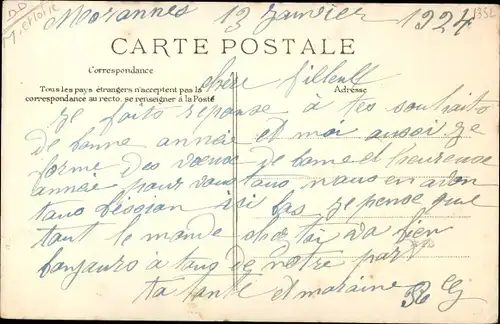 Morannes 13 Janvier 1924
1352
CARTE POSTALE
Correspondance
chère filleule
Tous les pays étrangers n'acceptent pas la
correspondance au recto. se renseigner à la Poste
Adresse
je faits reponse à tes souhaits
de bonne année et moi aussi je
forme des voeux de bonne et heureuse
année pour vous tous nous en avon
tous besoian isi bas je pense que
tout le monde chez toi va bien
bonjours à tous de notre part
ta tante et maraine